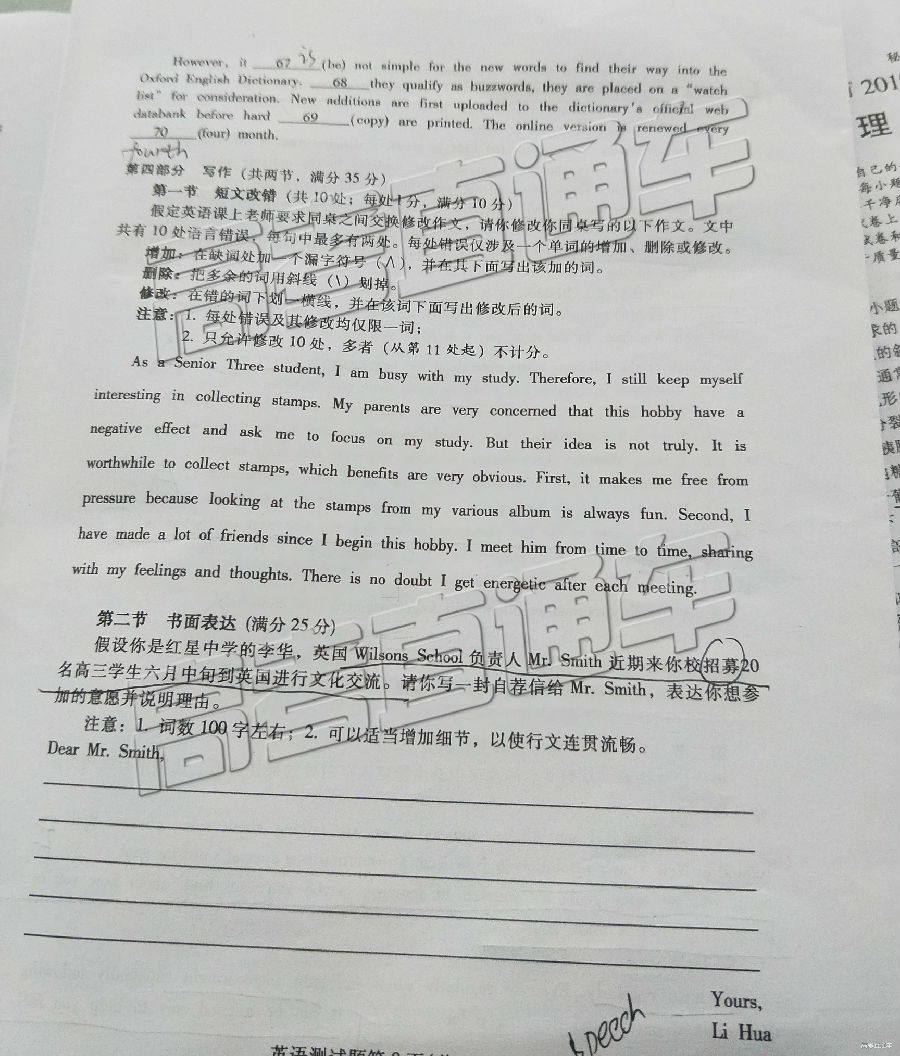 However, it 67 is (be) not simple for the new words to find their way into the
Oxford English Dictionary. 68 they qualify as buzzwords, they are placed on a "watch
list" for consideration. New additions are first uploaded to the dictionary's official web
databank before hard 69 (copy) are printed. The online version is renewed every
70 (four) month.
fourth
第四部分 写作(共两节,满分35分)
第一节 短文改错(共10处;每处1分,满分10分)
假定英语课上老师要求同桌之间交换修改作文,请你修改你同桌写的以下作文。文中
共有10处语言错误,每句中最多有两处。每处错误仅涉及一个单词的增加、删除或修改。
增加:在缺词处加一个漏字符号(∧),并在其下面写出该加的词。
删除:把多余的词用斜线(\)划掉。
修改:在错的词下划一横线,并在该词下面写出修改后的词。
注意:1. 每处错误及其修改均仅限一词;
2. 只允许修改10处,多者(从第11处起)不计分。
As a Senior Three student, I am busy with my study. Therefore, I still keep myself
interesting in collecting stamps. My parents are very concerned that this hobby have a
negative effect and ask me to focus on my study. But their idea is not truly. It is
worthwhile to collect stamps, which benefits are very obvious. First, it makes me free from
pressure because looking at the stamps from my various album is always fun. Second, I
have made a lot of friends since I begin this hobby. I meet him from time to time, sharing
with my feelings and thoughts. There is no doubt I get energetic after each meeting.
第二节 书面表达(满分25分)
假设你是红星中学的李华,英国Wilsons School负责人Mr. Smith近期来你校招募20
名高三学生六月中旬到英国进行文化交流。请你写一封自荐信给Mr. Smith,表达你想参
加的意愿并说明理由。
注意:1. 词数100字左右;2. 可以适当增加细节,以使行文连贯流畅。
Dear Mr. Smith,
Yours,
Li Hua
speech
高考直通车
高考直通车
201
理
小题